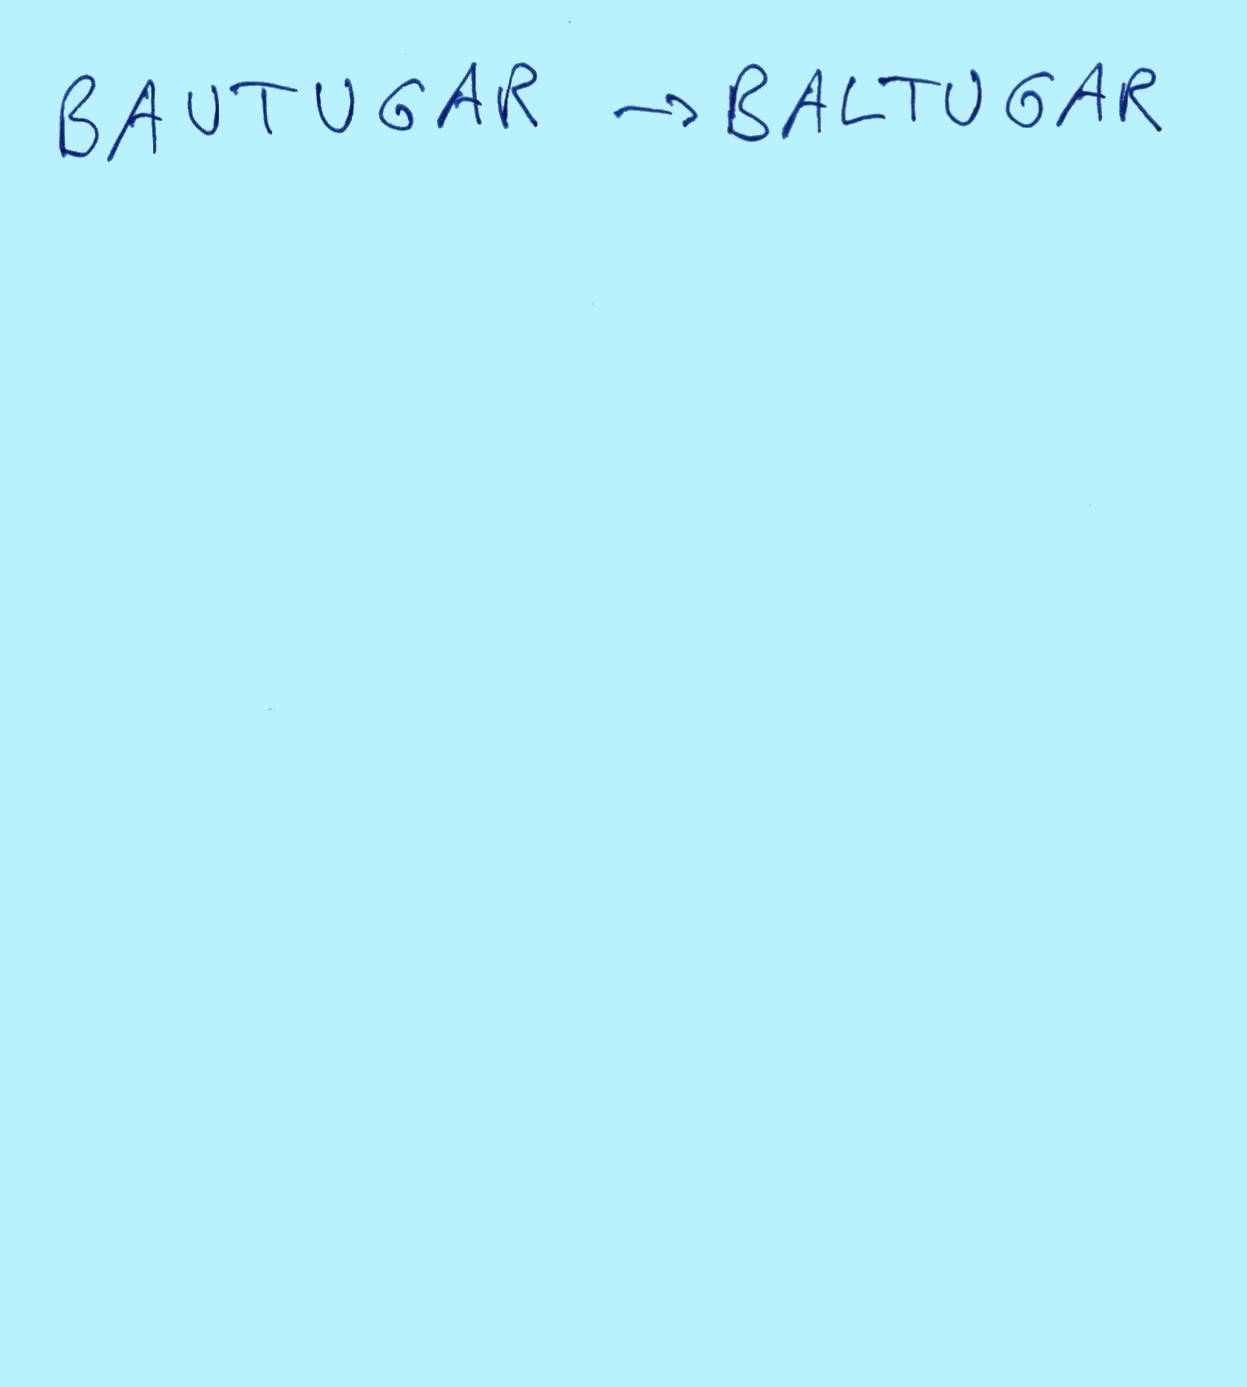 BAUTUGAR → BALTUGAR